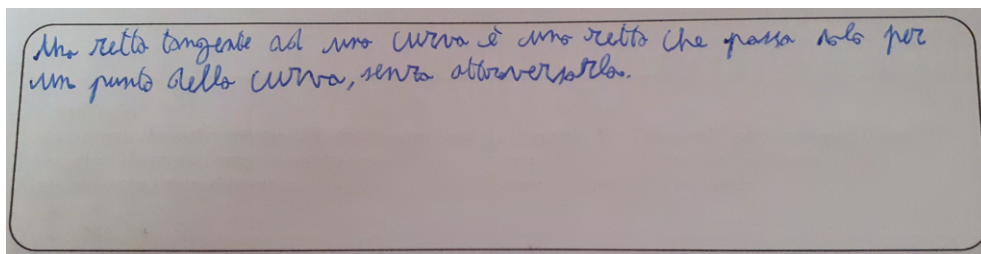 Una retta tangente ad una curva è una retta che passa solo per
un punto della curva, senza attraversarla.